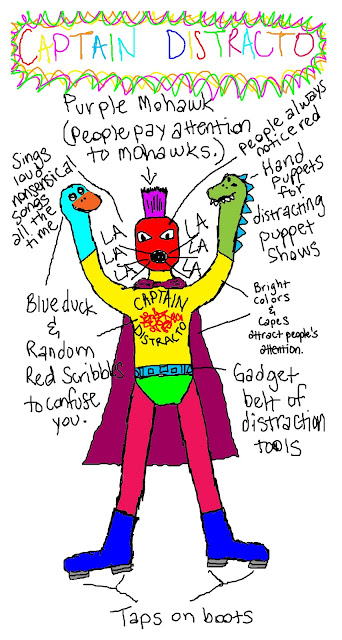 CAPTAIN DISTRACTO
Purple Mohawk
(People pay attention
to mohawks.)
People always
notice red
Sings
loud
nonsensical
songs
all the
time!
Hand
Puppets
for
distracting
puppet
shows
LA
LA
LA
LA
LA
LA
CAPTAIN
DISTRACTO
Blue duck
&
Random
Red Scribbles
to confuse
you.
Bright
colors
&
Capes
attract people's
attention.
Gadget
belt of
distraction
tools
Taps on boots